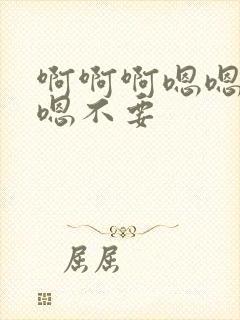 啊啊啊嗯嗯
嗯不要
屈屈